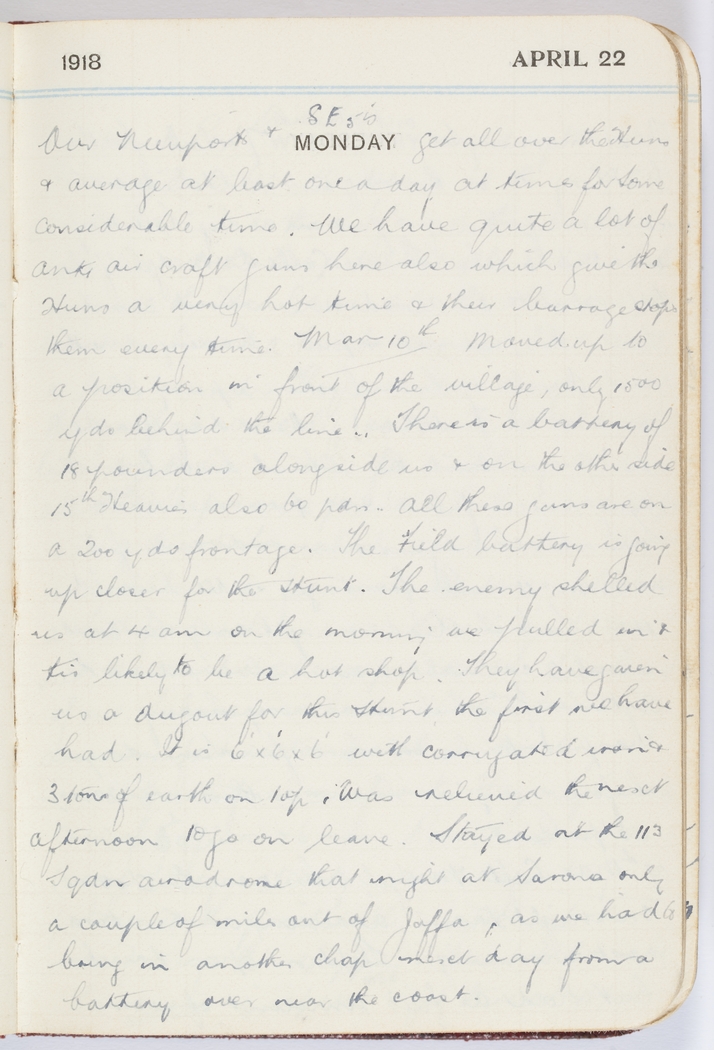 1918 APRIL 22
SE5's
Our Nieuports & MONDAY get all over the Huns
& average at least one a day at times for some
considerable time. We have quite a lot of
anti air craft guns here also which give the
Huns a very hot time & their barrage stops
them every time. Mar 10th Moved up to
a position in front of the village, only 1500
yds behind the line.. There is a battery of
18 pounders alongside us & on the other side
15th Heavies also 60 pdrs. all these guns are on
a 200 yds frontage. The Field battery is going
up closer for the stunt. The enemy shelled
us at 4 am on the morning we pulled in &
tis likely to be a hot shop. They have given
us a dugout for this stunt the first we have
had. It is 6'x6'x6' with corrugated iron &
3 tons of earth on top. Was relieved the next
afternoon to go on leave. Stayed at the 113
Sqdn aerodrome that night at Sarona only
a couple of miles out of Jaffa, as we had to
bring in another chap next day from a
battery over near the coast.